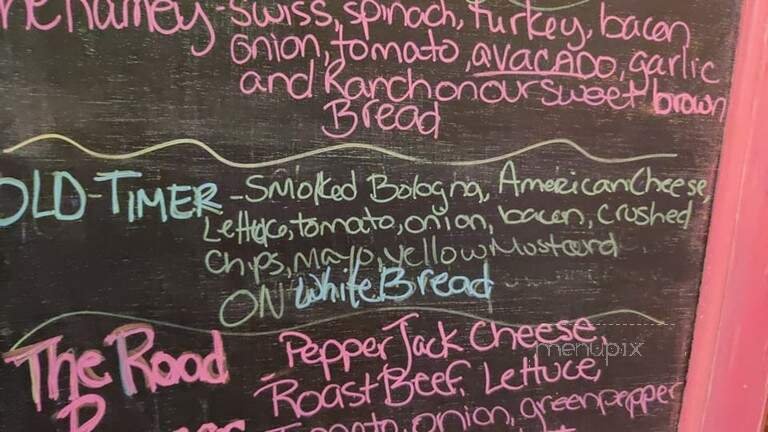 -Swiss, spinach, turkey, bacon
onion, tomato, AVACADO, garlic
and Ranch on our sweet brown
Bread
OLD-TIMER -Smoked Bologna, American Cheese,
Lettuce, tomato, onion, bacon, crushed
Chips, Mayo, yellow Mustard
ON White Bread
The Road - Pepper Jack Cheese
Roast Beef, Lettuce,
Tomato, onion, green pepper
menupix